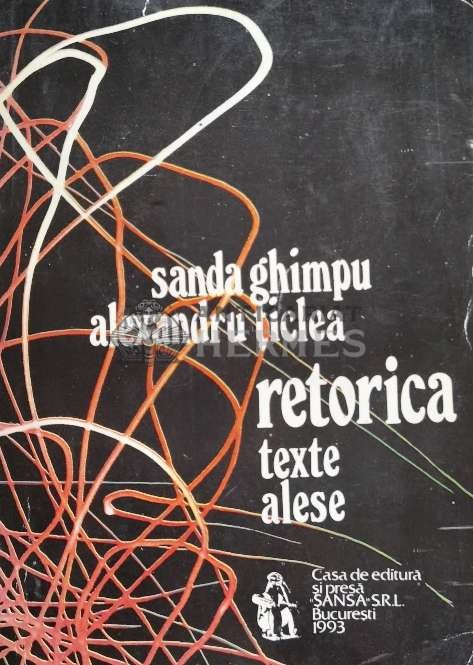 sanda ghimpu
alexandru țiclea
HERMES
retorica
texte
alese
Casa de editură
și presă
"ȘANSA" S.R.L.
București
1993